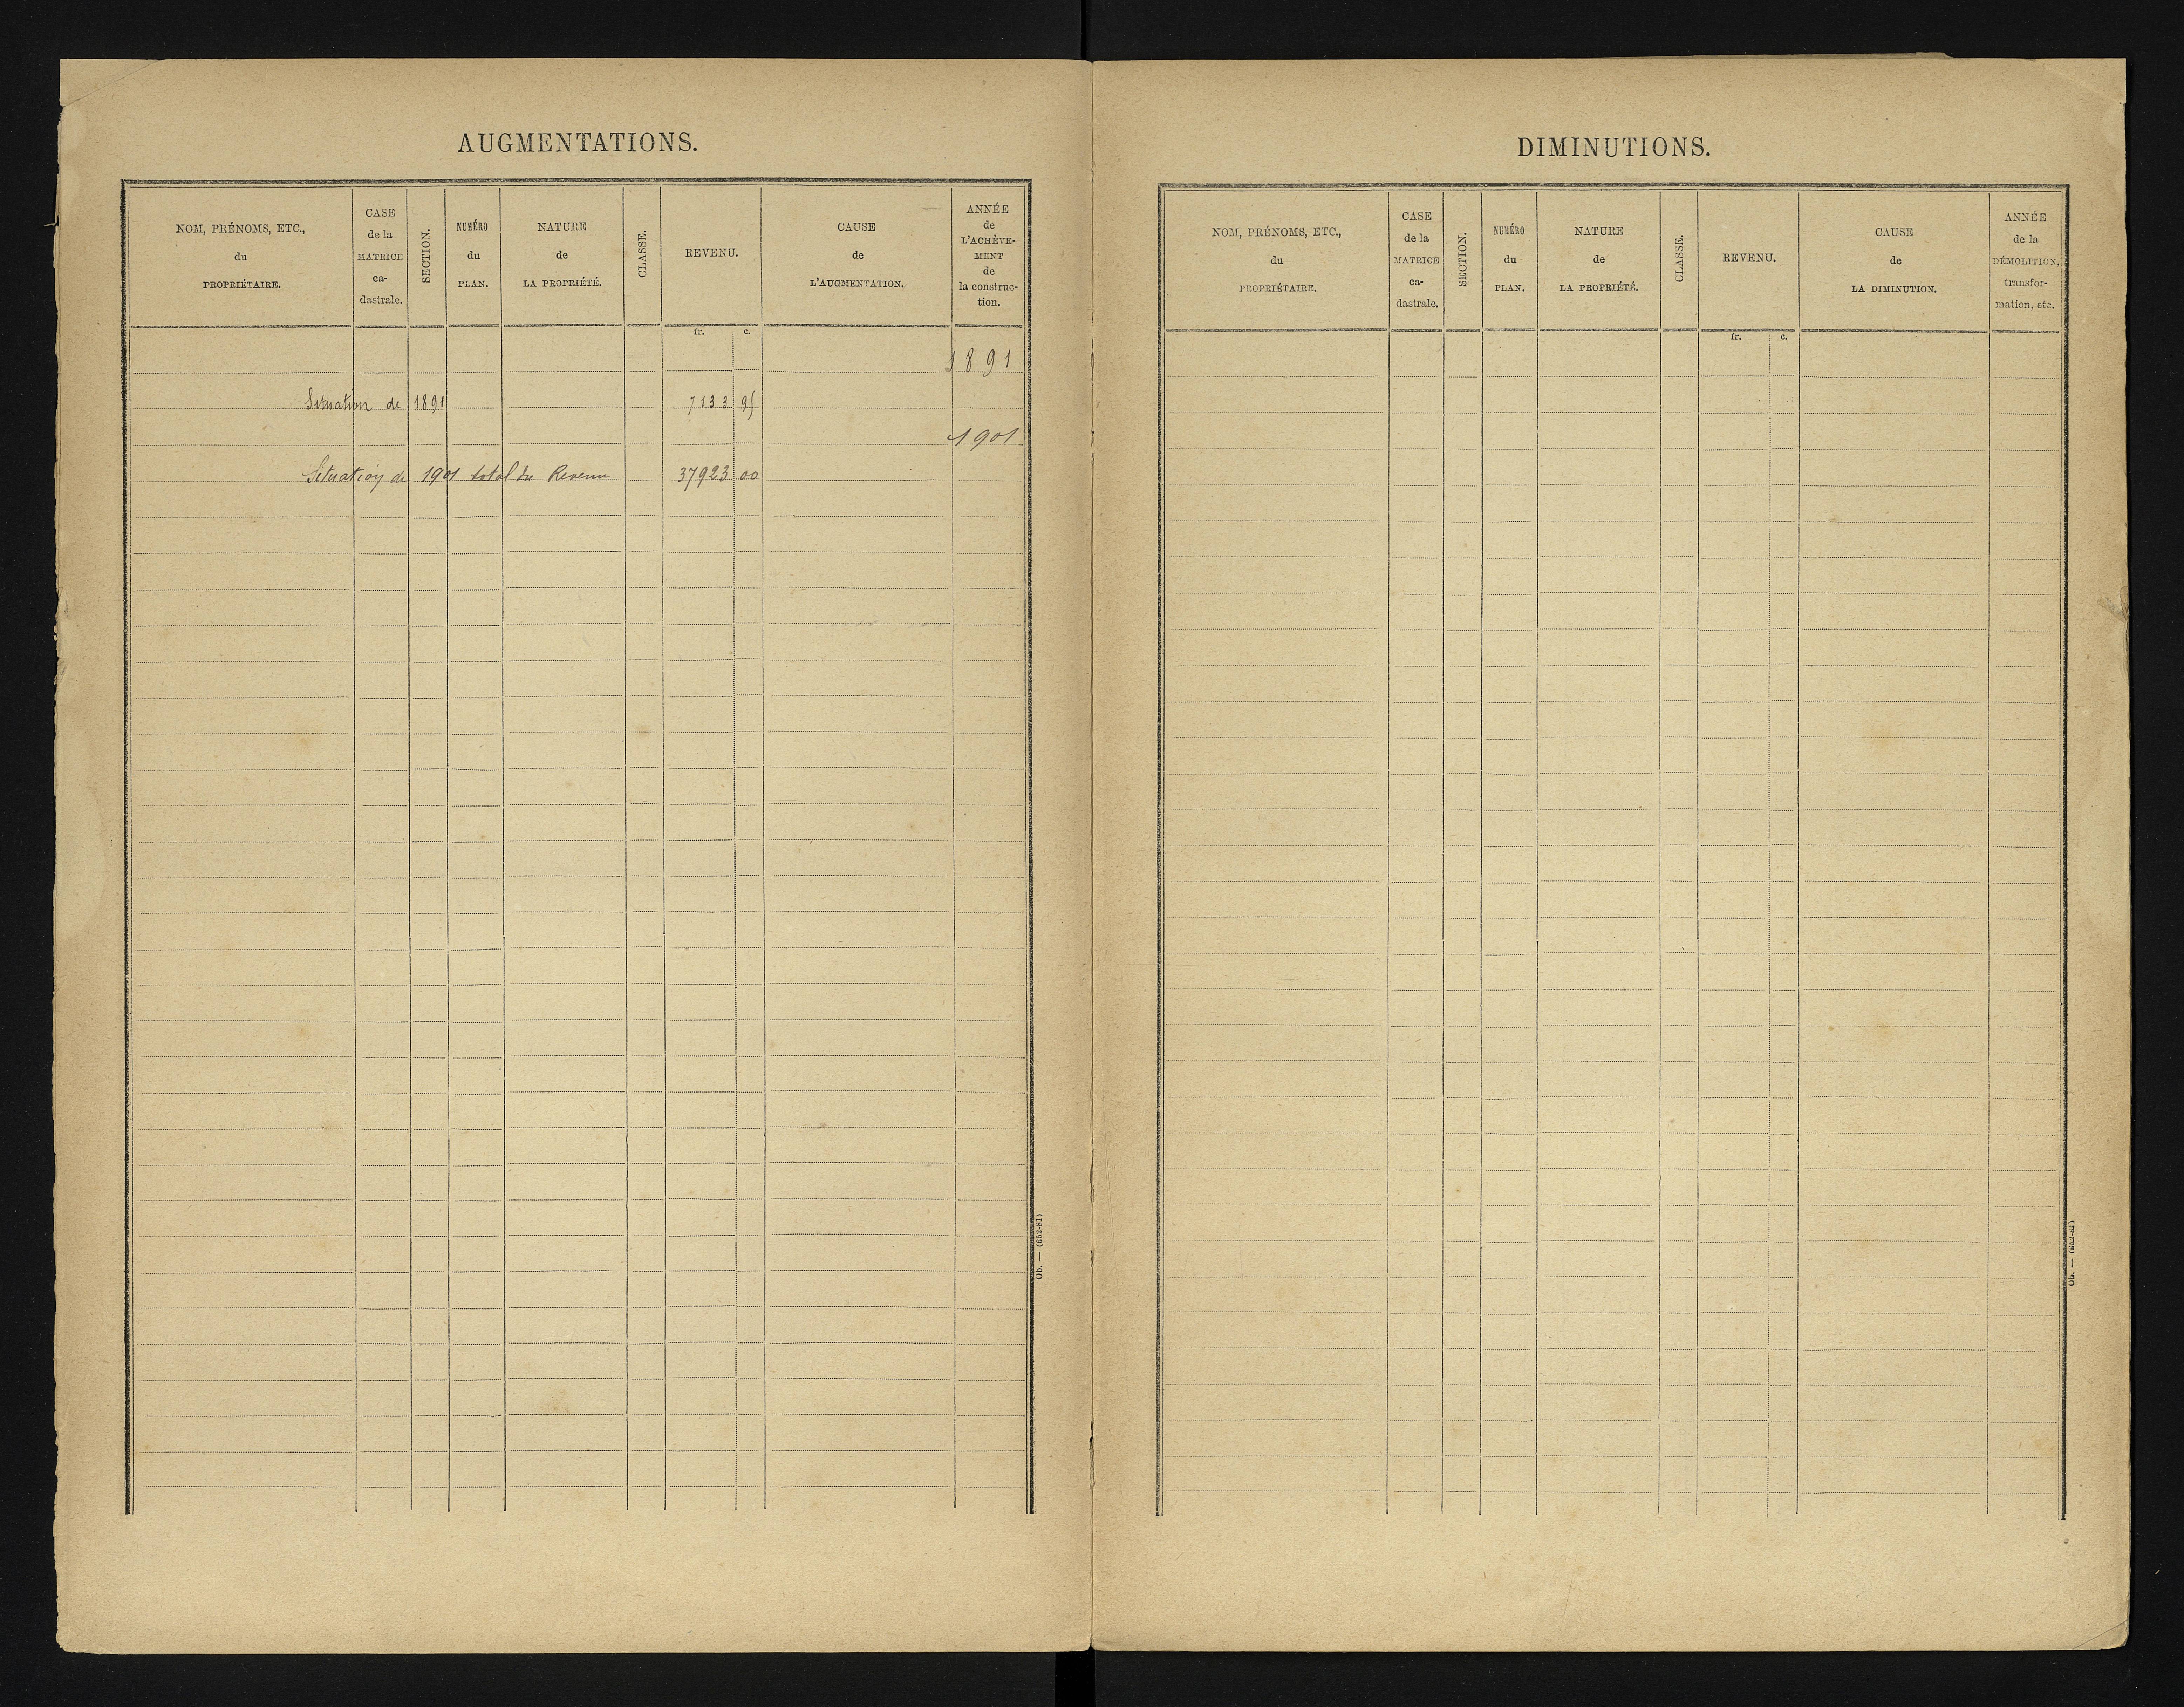 AUGMENTATIONS.
NOM, PRÉNOMS, ETC.,
du
PROPRIÉTAIRE.
CASE
de la
MATRICE
ca-
dastrale.
SECTION.
NUMÉRO
du
PLAN.
NATURE
de
LA PROPRIÉTÉ.
CLASSE.
REVENU.
CAUSE
de
L'AUGMENTATION.
ANNÉE
de
L'ACHÈVE-
MENT
de
la construc-
tion.
fr. c.
1891
Situation de 1891 7133 95
1901
Situation de 1901 total du Revenu 37923 00
Ob. — (652-81)
DIMINUTIONS.
NOM, PRÉNOMS, ETC.,
du
PROPRIÉTAIRE.
CASE
de la
MATRICE
ca-
dastrale.
SECTION.
NUMÉRO
du
PLAN.
NATURE
de
LA PROPRIÉTÉ.
CLASSE.
REVENU.
CAUSE
de
LA DIMINUTION.
ANNÉE
de la
DÉMOLITION,
transfor-
mation, etc.
fr. c.